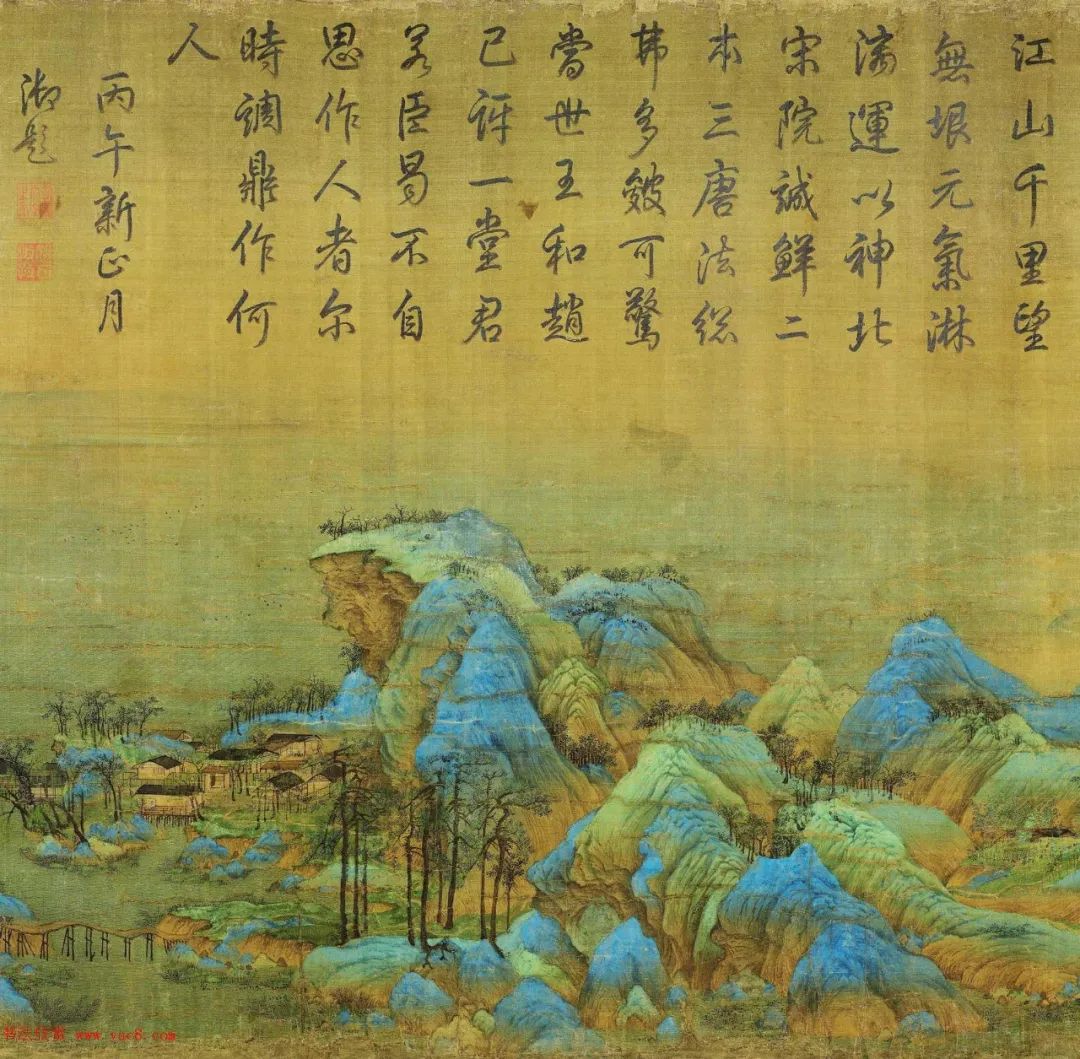 江山千里望
無垠元氣淋
漓運以神北
宋院誠鮮二
本三唐法總
弗多皴可驚
當世王和趙
已訝一堂君
若臣曷不自
思作人者尔
時調鼎作何
人
丙午新正月
御題
书法欣赏 www.yac8.com